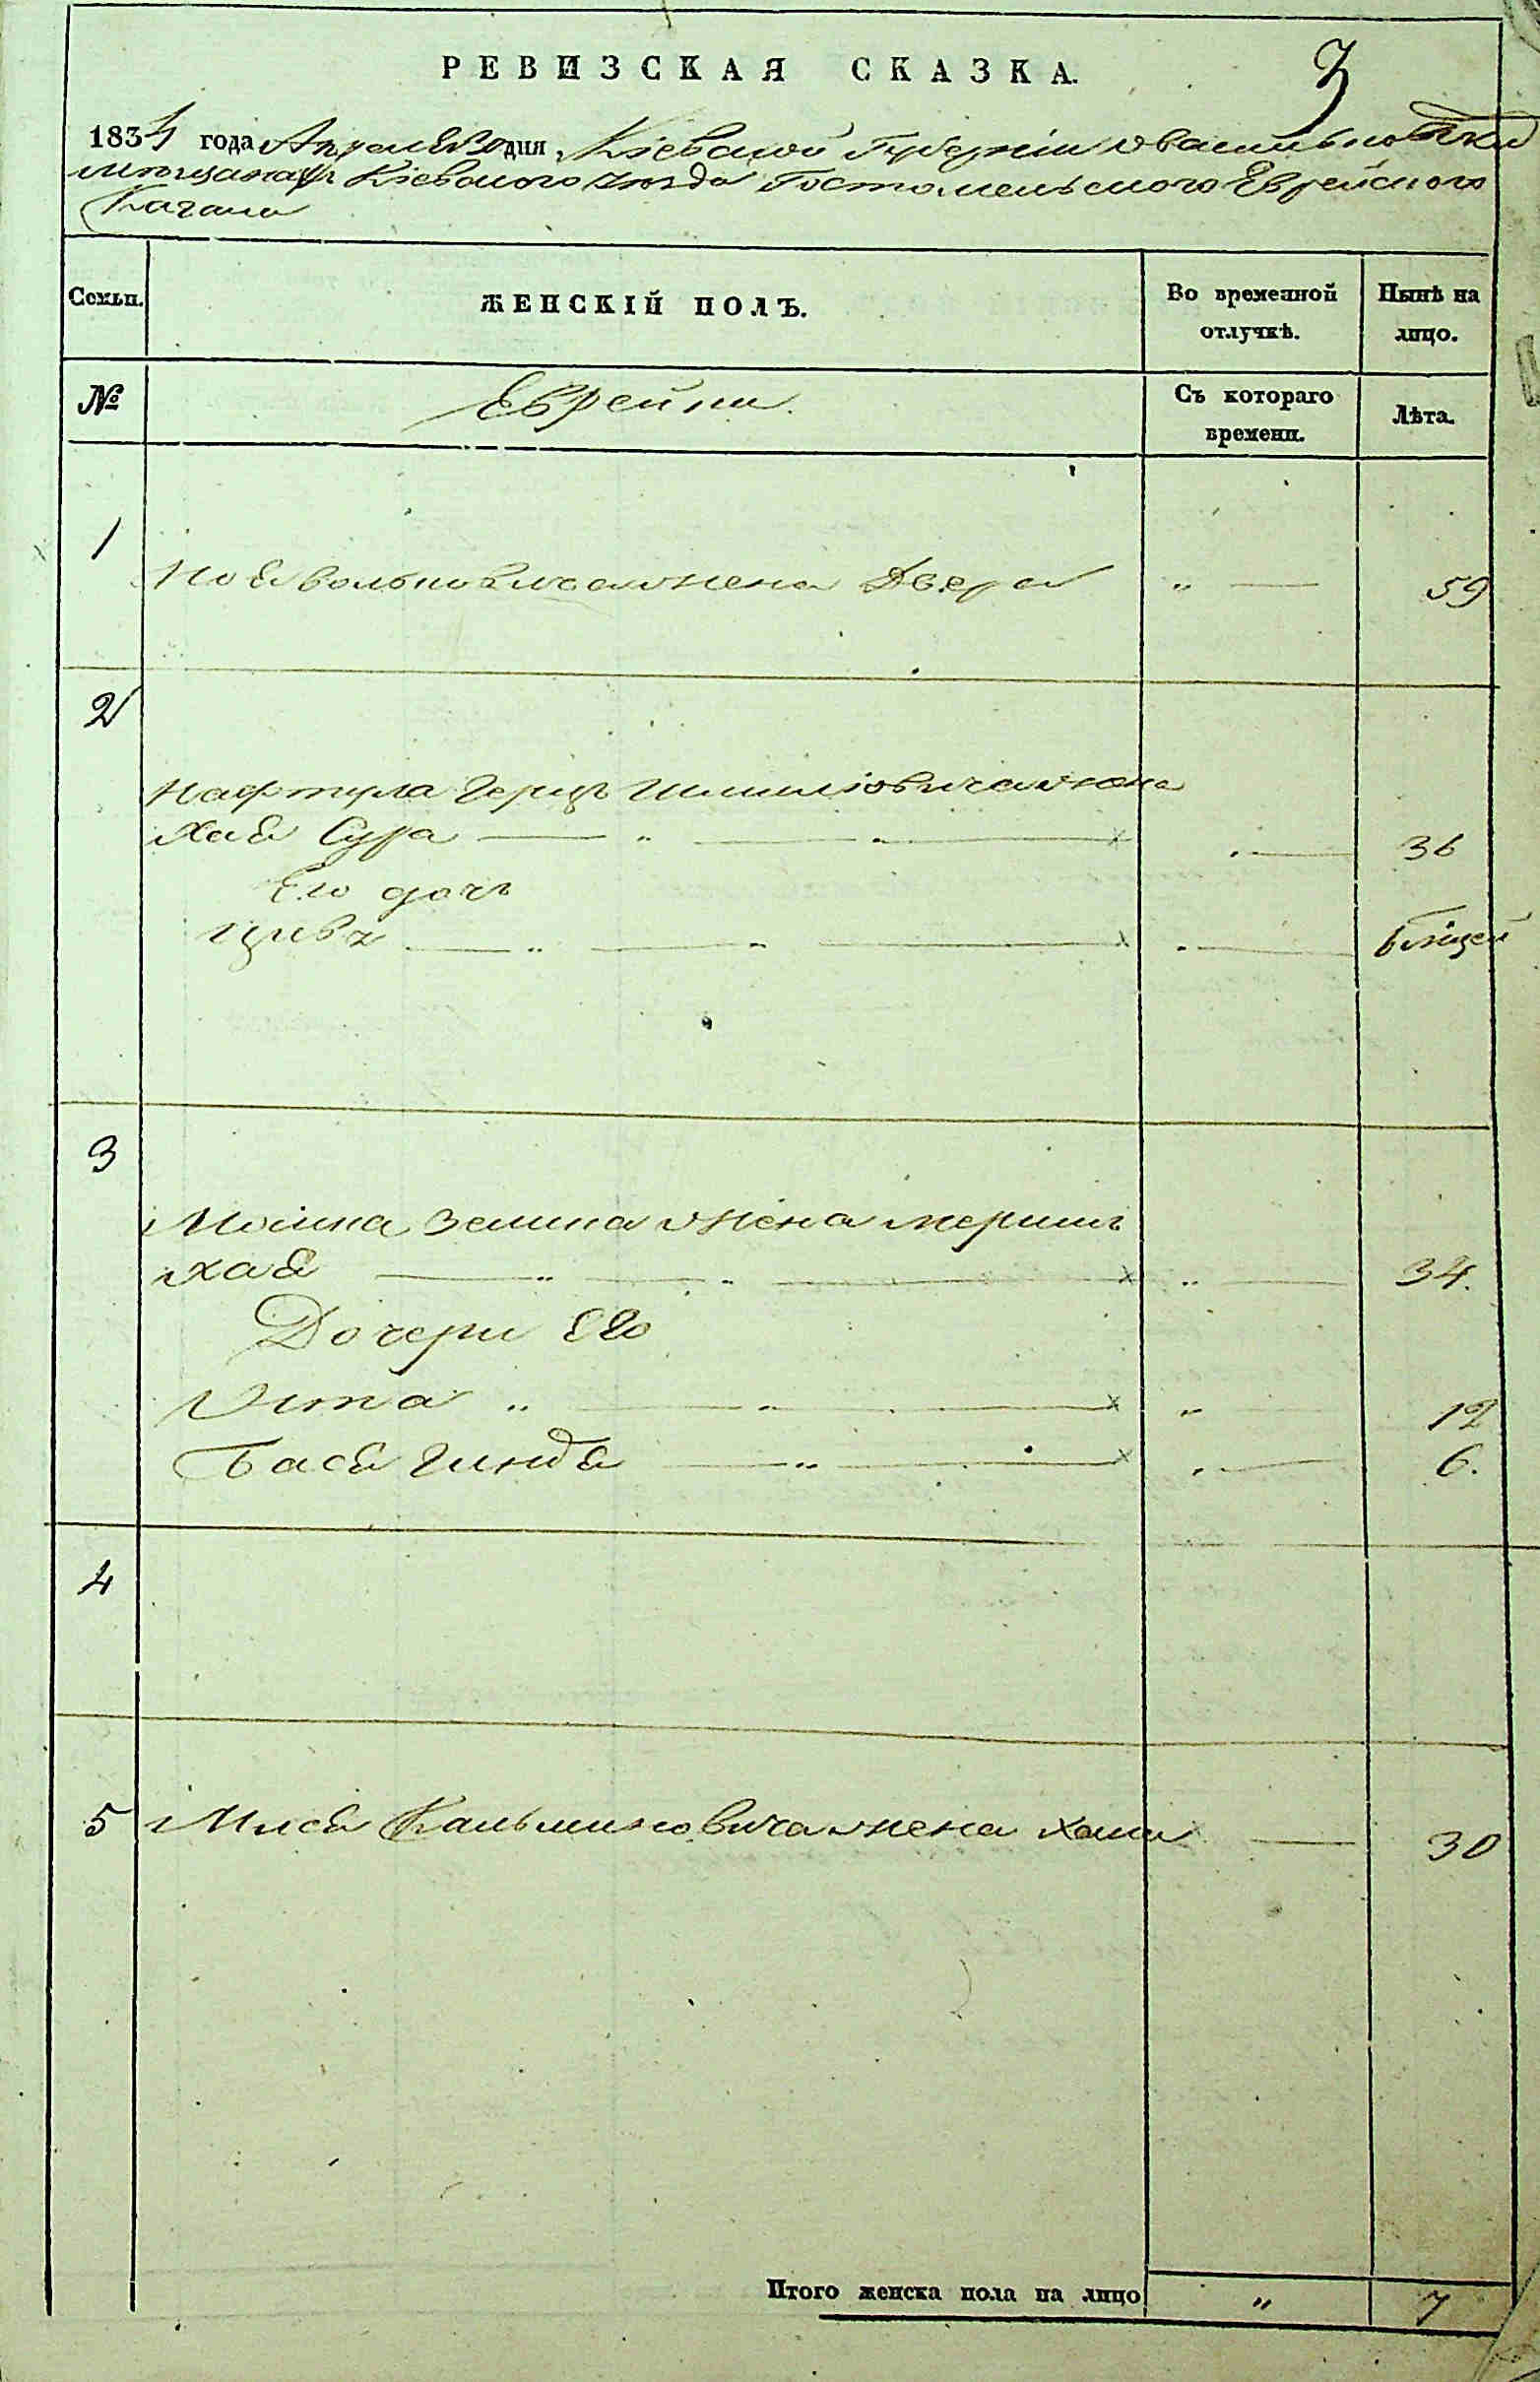 РЕВИЗСКАЯ СКАЗКА.
3
1834 года Апреля 30 дня Кіевской Губерніи Васильковъ
мѣщанахъ Кіевского уѣзда Гостомельского Еврейского
Кагала
Семьи. ЖЕНСКІЙ ПОЛЪ. Во временной отлучкѣ. Нынѣ на лицо.
№ Еврейки. Съ котораго времени. Лѣта.
1
жена Двера „ — 59
2
Нафтула Герцъ Шмилiовича жена
Хая Сура — „ — „ — „ — 36
Его дочь
Цивя — „ — „ — „ — 6 мѣцей
3
Мошка Зелика жена Меримъ
Хая — „ — „ — „ — 34.
Дочери Его
Ита „ — „ — „ — 12
Бася Гиндя — „ — „ — 6.
4
5 Мися Кальманновича жена Хана — 30
Итого женска пола на лицо „ 7